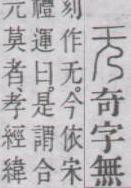 𠑶奇字無
刻作无。今依宋
禮運曰。是謂合
元莫者、孝經緯